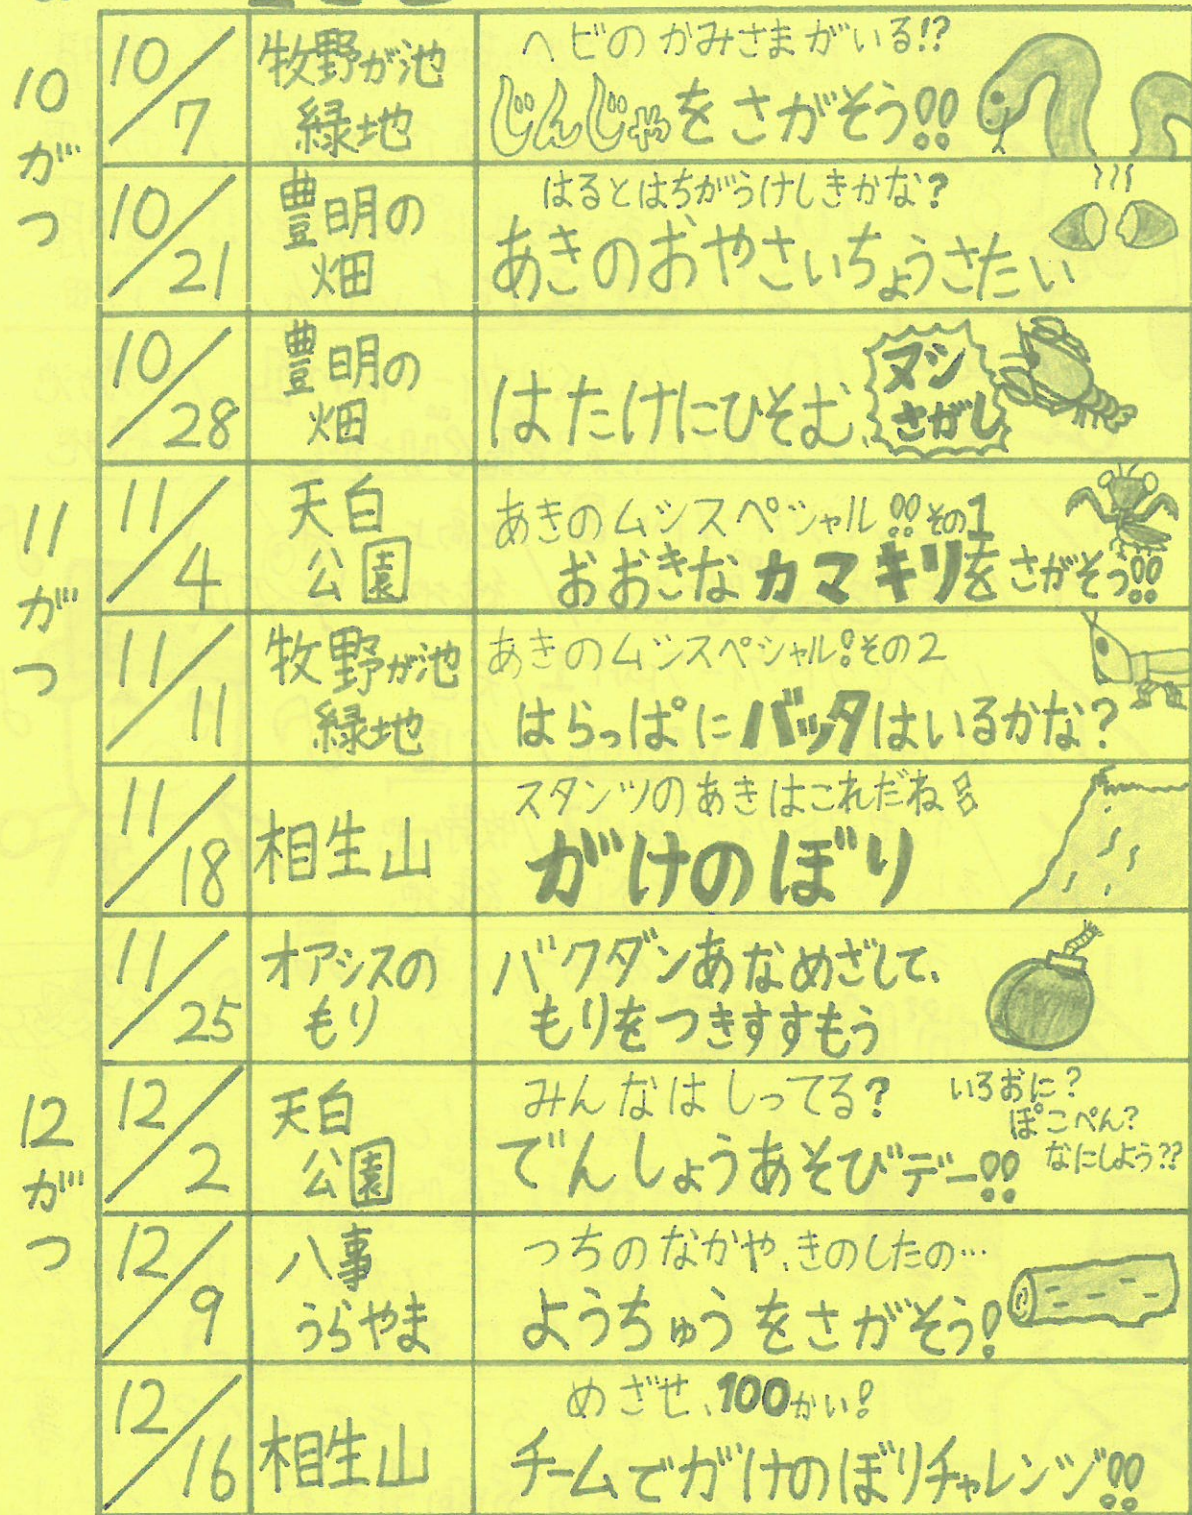 10がつ
10/7
牧野が池
緑地
ヘビのかみさまがいる!?
じんじゃをさがそう!!
10/21
豊明の
畑
はるとはちがうけしきかな?
あきのおやさいちょうさたい
10/28
豊明の
畑
はたけにひそむ、ヌシ
さがし
11がつ
11/4
天白
公園
あきのムシスペシャル!!その1
おおきなカマキリをさがそう!!
11/11
牧野が池
緑地
あきのムシスペシャル!その2
はらっぱにバッタはいるかな?
11/18
相生山
スタンツのあきはこれだね!!
がけのぼり
11/25
オアシスの
もり
バクダンあなめざして、
もりをつきすすもう
12がつ
12/2
天白
公園
みんなはしってる?
でんしょうあそびデー!!
いろおに?
ぽこぺん?
なにしよう??
12/9
八事
うらやま
つちのなかや、きのしたの…
ようちゅうをさがそう!
12/16
相生山
めざせ、100かい!
チームでがけのぼりチャレンジ!!